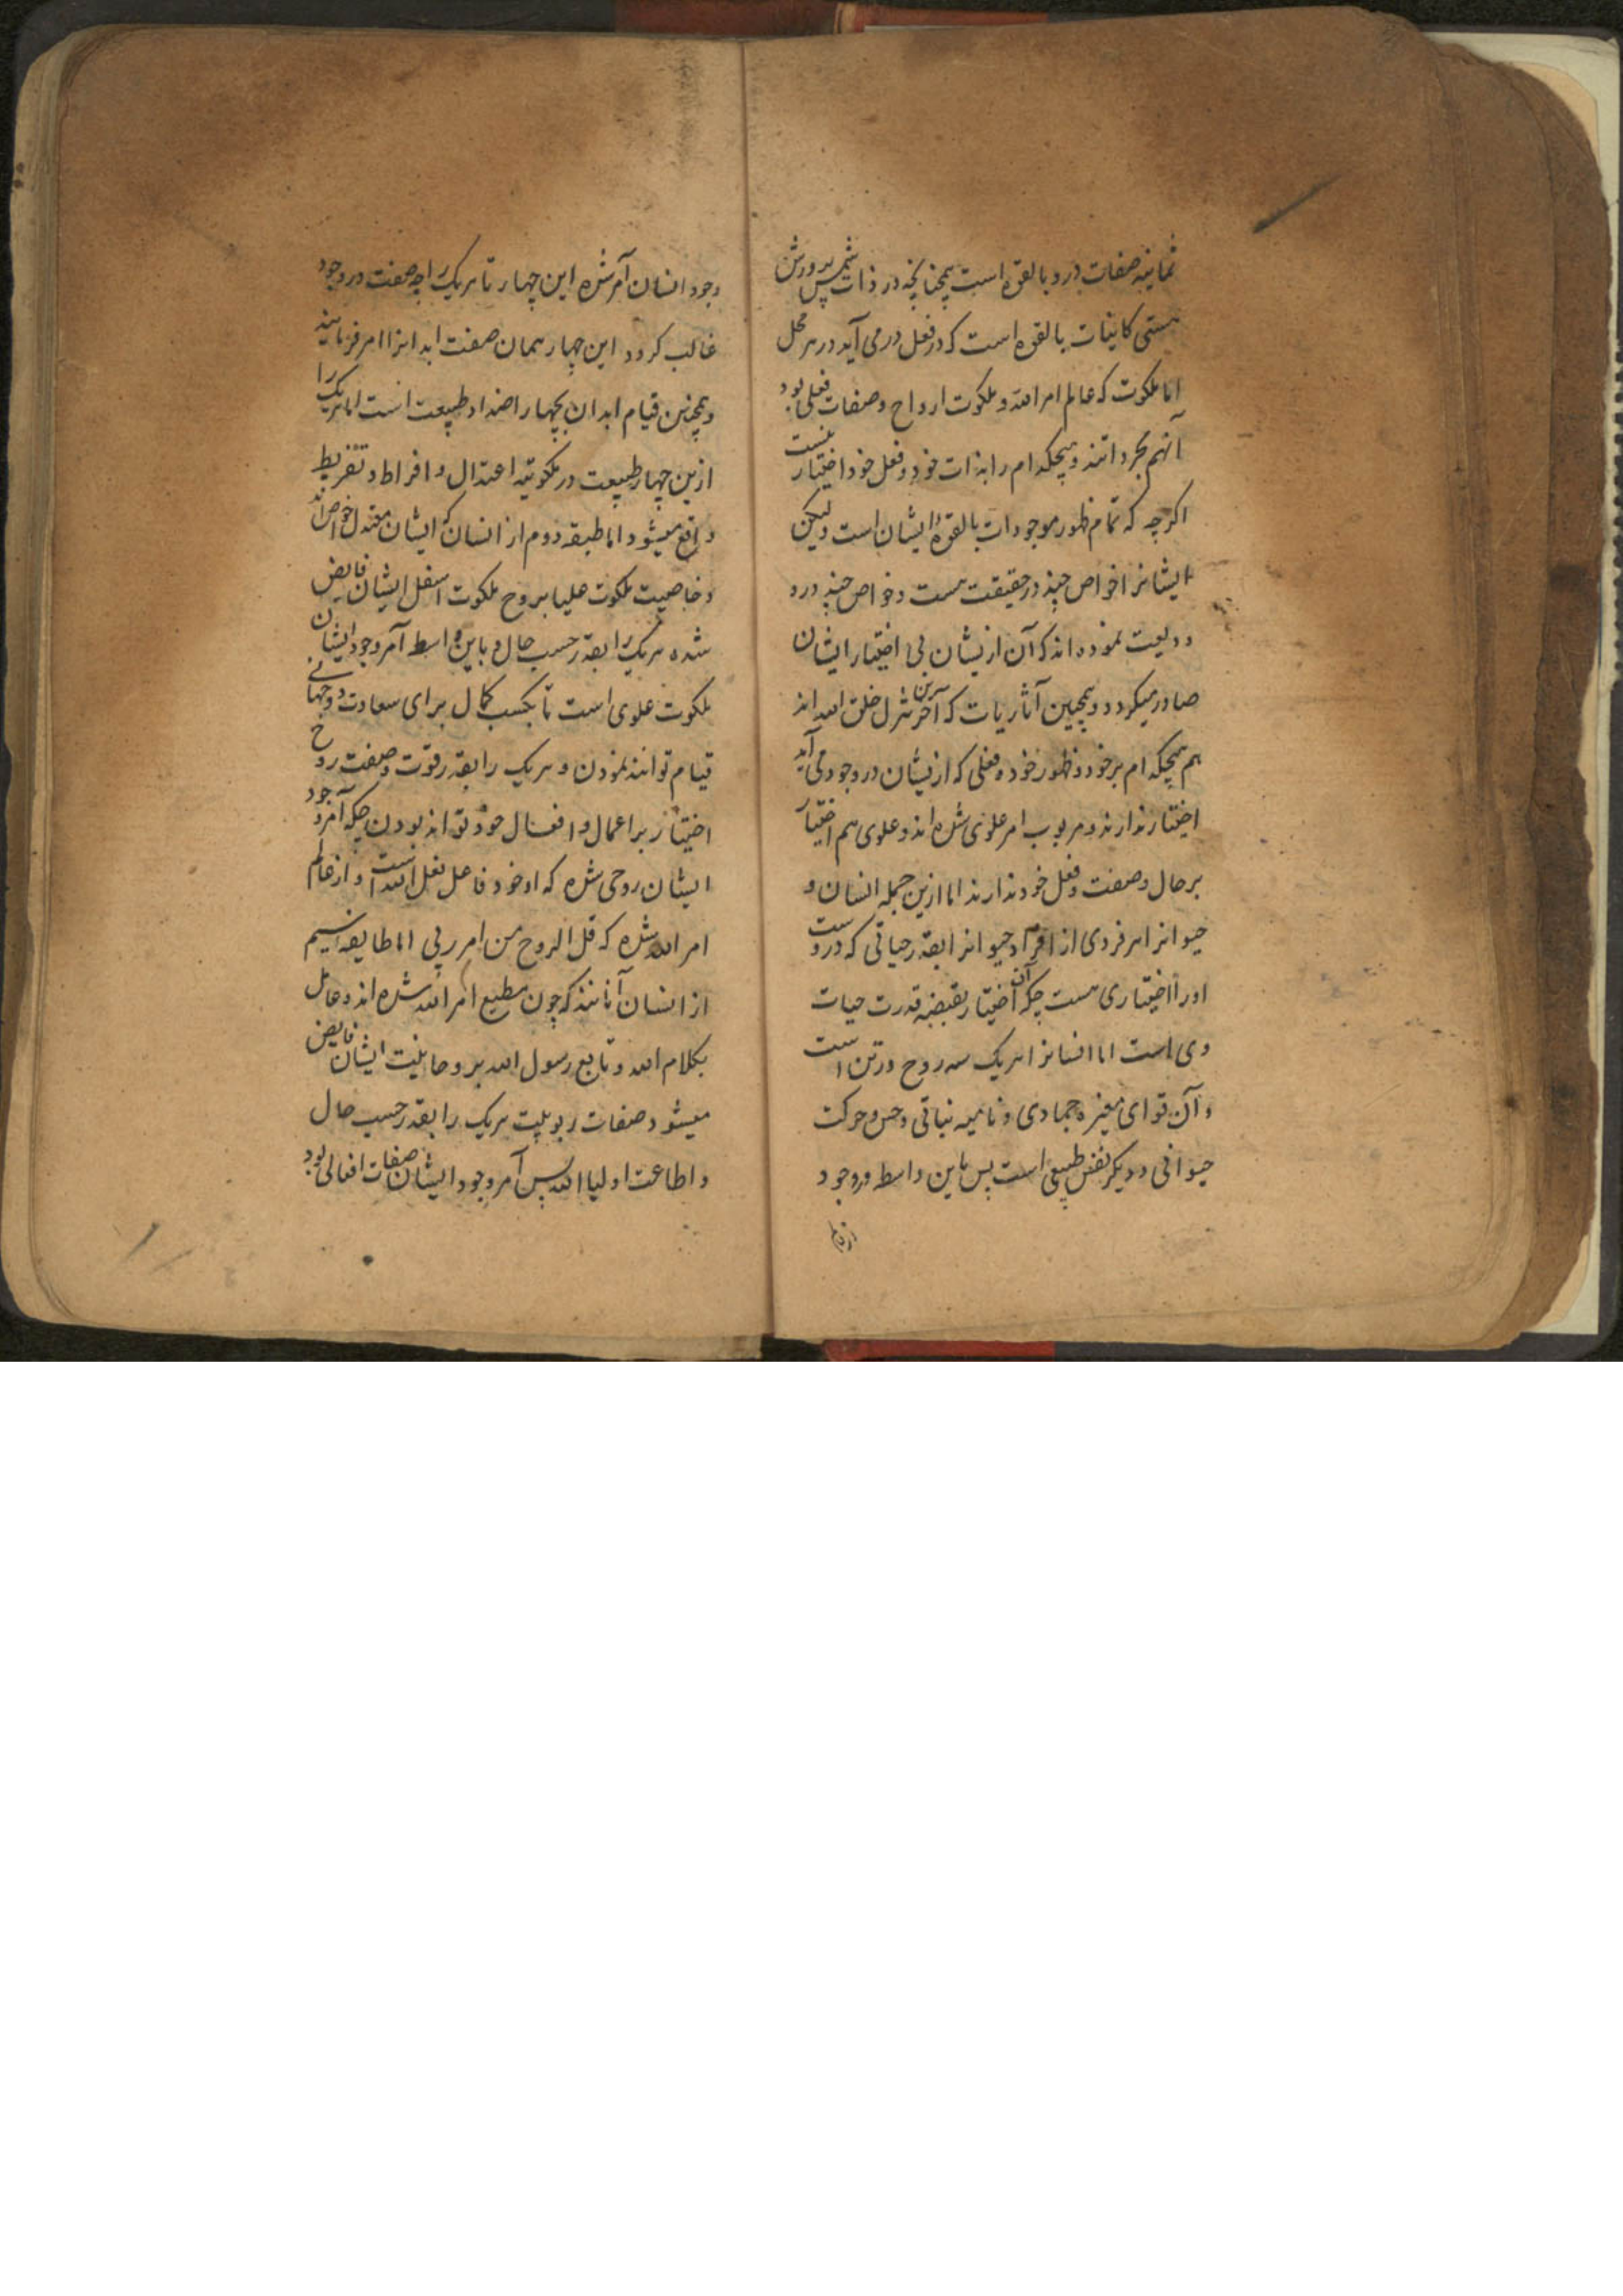 ثمانیه صفات درو بالقوه است همچنانچه در ذات شمس پرورش
هستی کاینات بالقوه است که در فعل درمی آید در هر محل
اما ملکوت که عالم امر الله و ملکوت ارواح و صفات فعلی بود
آنهم مجرداتند و هیچکدام را بذات خود و فعل خود اختیار نیست
اکرچه که تمام ظهور موجودات بالقوه ایشان است ولیکن
ایشانرا خواص چند در حقیقت هست و خواص چند درو
ودیعت نموده اند که آن ازیشان بی اختیار ایشان
صادر میکردد و همچنین آثاریات که آخرترین تنزل خلق الله اند
هم هیچکدام بر خود و ظهور خود و فعلی که ازیشان در وجود می آید
اختیار ندارند و مربوب امر علوی شده اند و علوی هم اختیار
بر حال و صفت و فعل خود ندارند اما ازین جمله انسان و
حیوانرا هر فردی از افراد حیوانرا بقدر حیاتی که دروست
اورا اختیاری هست چکه آن اختیار بقبضه قدرت حیات
وی است اما انسانرا هر یک سه روح در تن است
و آن قوای جمادی و نامیه نباتی و حس و حرکت
حیوانی و دیکر نفس طبیعی است پس باین واسطه در وجود
وجود انسان آمر شده این چهار تا هر یک را چه صفت در وجود
غالب کردد این چهار همان صفت ابدانرا امر فرمایند
و همچنین قیام ابدان بچهار اضداد طبیعت است اما هر یک را
ازین چهار طبیعت در ملکوتیه اعتدال و افراط و تفریط
واقع میشود اما طبقه دوم از انسان که ایشان معتدل خواص اند
و خاصیت ملکوت علیا بروح ملکوت اسفل ایشان فایض
شده هر یک را بقدر حسب حال و باین واسطه آمر وجود ایشان
ملکوت علوی است تا بکسب کمال برای سعادت دو جهانی
قیام توانند نمودن و هر یک را بقدر قوت و صفت روح
اختیار بر اعمال و افعال خود تواند بودن چکه آمر وجود
ایشان روحی شده که او خود فاعل فعل الله است و از عالم
امر الله شده که قل الروح من امر ربی اما طایفه سیم
از انسان آنانند که چون مطیع امر الله شده اند و عامل
بکلام الله و تابع رسول الله بروحانیت ایشان فایض
میشود صفات ربوبیت هر یک را بقدر حسب حال
و اطاعت اولیا الله پس آمر وجود ایشان صفات افعالی بود